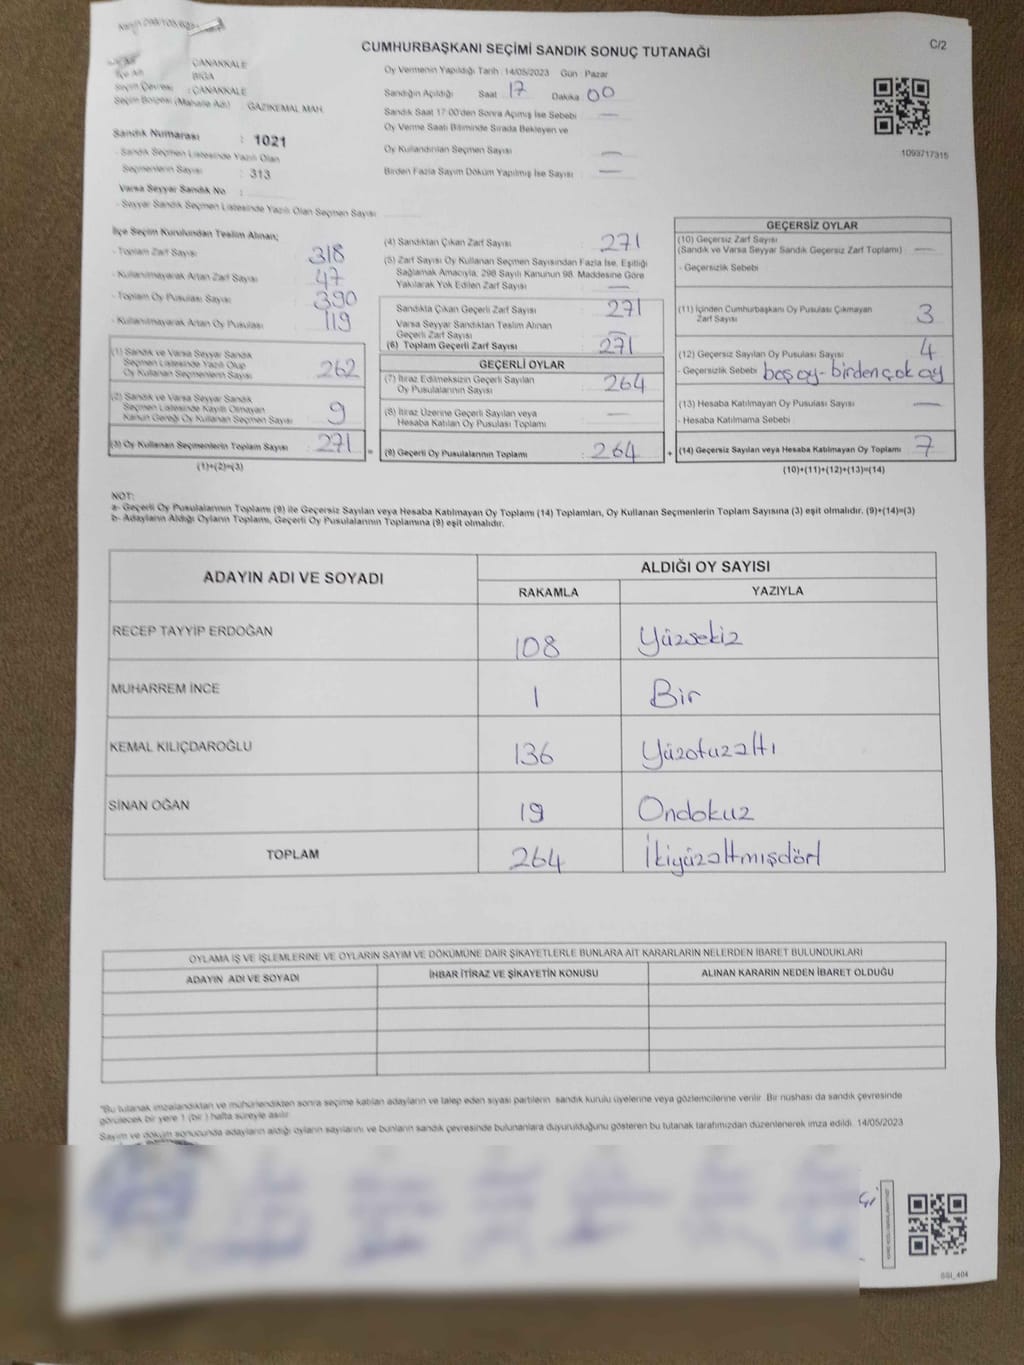 C/2
CUMHURBAŞKANI SEÇİMİ SANDIK SONUÇ TUTANAĞI
ÇANAKKALE
İlçe Adı BİGA
Seçim Çevresi : ÇANAKKALE
Seçim Bölgesi (Mahalle Adı) : GAZİKEMAL MAH.
Sandık Numarası : 1021
- Sandık Seçmen Listesinde Yazılı Olan
Seçmenlerin Sayısı : 313
Varsa Seyyar Sandık No :
- Seyyar Sandık Seçmen Listesinde Yazılı Olan Seçmen Sayısı
Oy Vermenin Yapıldığı Tarih : 14/05/2023 Gün Pazar
Sandığın Açıldığı Saat 17 Dakika 00
Sandık Saat 17:00'den Sonra Açılmış İse Sebebi —
Oy Verme Saati Bitiminde Sırada Bekleyen ve
Oy Kullandırılan Seçmen Sayısı —
Birden Fazla Sayım Döküm Yapılmış İse Sayısı —
1093717315
İlçe Seçim Kurulundan Teslim Alınan;
- Toplam Zarf Sayısı : 318
- Kullanılmayarak Artan Zarf Sayısı : 47
- Toplam Oy Pusulası Sayısı : 390
- Kullanılmayarak Artan Oy Pusulası : 119
(1) Sandık ve Varsa Seyyar Sandık
Seçmen Listesinde Yazılı Olup
Oy Kullanan Seçmenlerin Sayısı : 262
(2) Sandık ve Varsa Seyyar Sandık
Seçmen Listesinde Kayıtlı Olmayan
Kanun Gereği Oy Kullanan Seçmen Sayısı : 9
(3) Oy Kullanan Seçmenlerin Toplam Sayısı : 271
(1)+(2)=(3)
(4) Sandıktan Çıkan Zarf Sayısı : 271
(5) Zarf Sayısı Oy Kullanan Seçmen Sayısından Fazla İse, Eşitliği
Sağlamak Amacıyla; 298 Sayılı Kanunun 98. Maddesine Göre
Yakılarak Yok Edilen Zarf Sayısı : —
Sandıkta Çıkan Geçerli Zarf Sayısı : 271
Varsa Seyyar Sandıktan Teslim Alınan
Geçerli Zarf Sayısı : —
(6) Toplam Geçerli Zarf Sayısı : 271
GEÇERLİ OYLAR
(7) İtiraz Edilmeksizin Geçerli Sayılan
Oy Pusulalarının Sayısı : 264
(8) İtiraz Üzerine Geçerli Sayılan veya
Hesaba Katılan Oy Pusulası Toplamı : —
= (9) Geçerli Oy Pusulalarının Toplamı : 264 +
GEÇERSİZ OYLAR
(10) Geçersiz Zarf Sayısı
(Sandık ve Varsa Seyyar Sandık Geçersiz Zarf Toplamı) : —
- Geçersizlik Sebebi
(11) İçinden Cumhurbaşkanı Oy Pusulası Çıkmayan
Zarf Sayısı : 3
(12) Geçersiz Sayılan Oy Pusulası Sayısı : 4
- Geçersizlik Sebebi : boş oy - birden çok oy
(13) Hesaba Katılmayan Oy Pusulası Sayısı : —
- Hesaba Katılmama Sebebi :
(14) Geçersiz Sayılan veya Hesaba Katılmayan Oy Toplamı : 7
(10)+(11)+(12)+(13)=(14)
NOT:
a- Geçerli Oy Pusulalarının Toplamı (9) ile Geçersiz Sayılan veya Hesaba Katılmayan Oy Toplamı (14) Toplamları, Oy Kullanan Seçmenlerin Toplam Sayısına (3) eşit olmalıdır. (9)+(14)=(3)
b- Adayların Aldığı Oyların Toplamı, Geçerli Oy Pusulalarının Toplamına (9) eşit olmalıdır.
ADAYIN ADI VE SOYADI ALDIĞI OY SAYISI
RAKAMLA YAZIYLA
RECEP TAYYİP ERDOĞAN 108 Yüzsekiz
MUHARREM İNCE 1 Bir
KEMAL KILIÇDAROĞLU 136 Yüzotuzaltı
SİNAN OĞAN 19 Ondokuz
TOPLAM 264 İkiyüzaltmışdört
OYLAMA İŞ VE İŞLEMLERİNE VE OYLARIN SAYIM VE DÖKÜMÜNE DAİR ŞİKAYETLERLE BUNLARA AİT KARARLARIN NELERDEN İBARET BULUNDUKLARI
ADAYIN ADI VE SOYADI İHBAR İTİRAZ VE ŞİKAYETİN KONUSU ALINAN KARARIN NEDEN İBARET OLDUĞU
*Bu tutanak imzalandıktan ve mühürlendikten sonra seçime katılan adayların ve talep eden siyasi partilerin sandık kurulu üyelerine veya gözlemcilerine verilir. Bir nüshası da sandık çevresinde
görülecek bir yere 1 (bir ) hafta süreyle asılır.
Sayım ve döküm sonucunda adayların aldığı oyların sayılarını ve bunların sandık çevresinde bulunanlara duyurulduğunu gösteren bu tutanak tarafımızdan düzenlenerek imza edildi. 14/05/2023
SSI_404